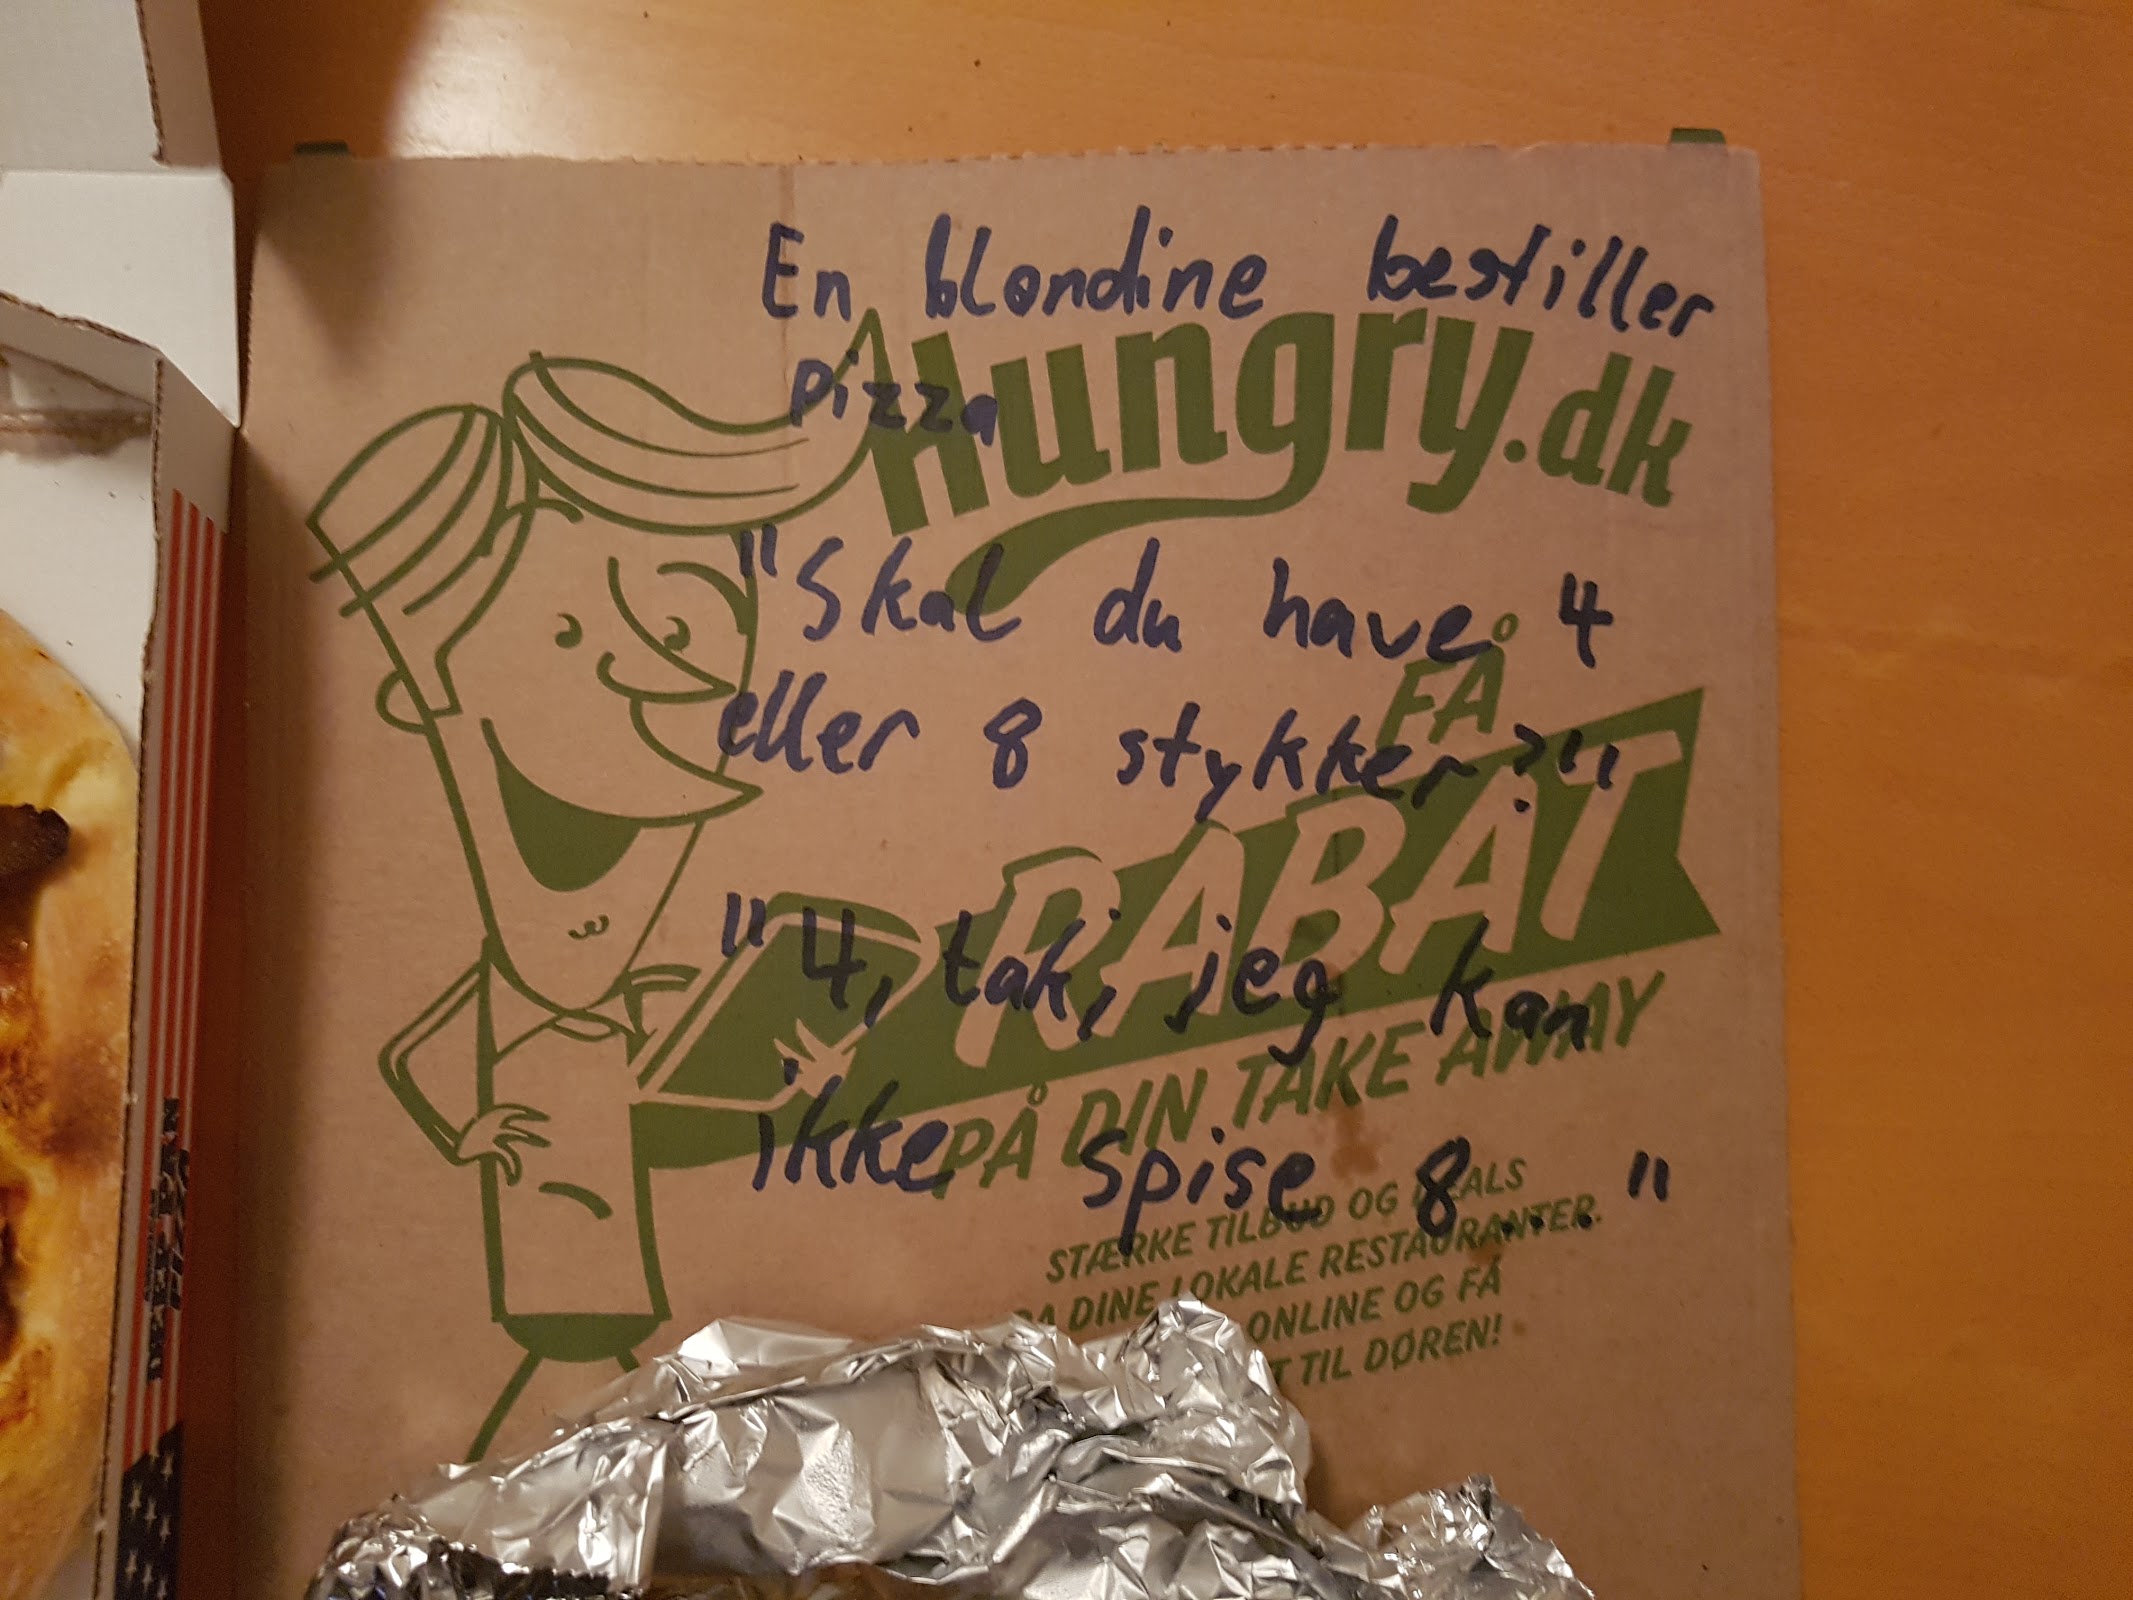 En blondine bestiller
pizza
Hungry.dk
"Skal du have 4
eller 8 stykker?"
FÅ
RABAT
"4, tak, jeg kan
ikke spise 8...."
PÅ DIN TAKE AWAY
STÆRKE TILBUD OG DEALS
DINE LOKALE RESTAURANTER.
ONLINE OG FÅ
TIL DØREN!